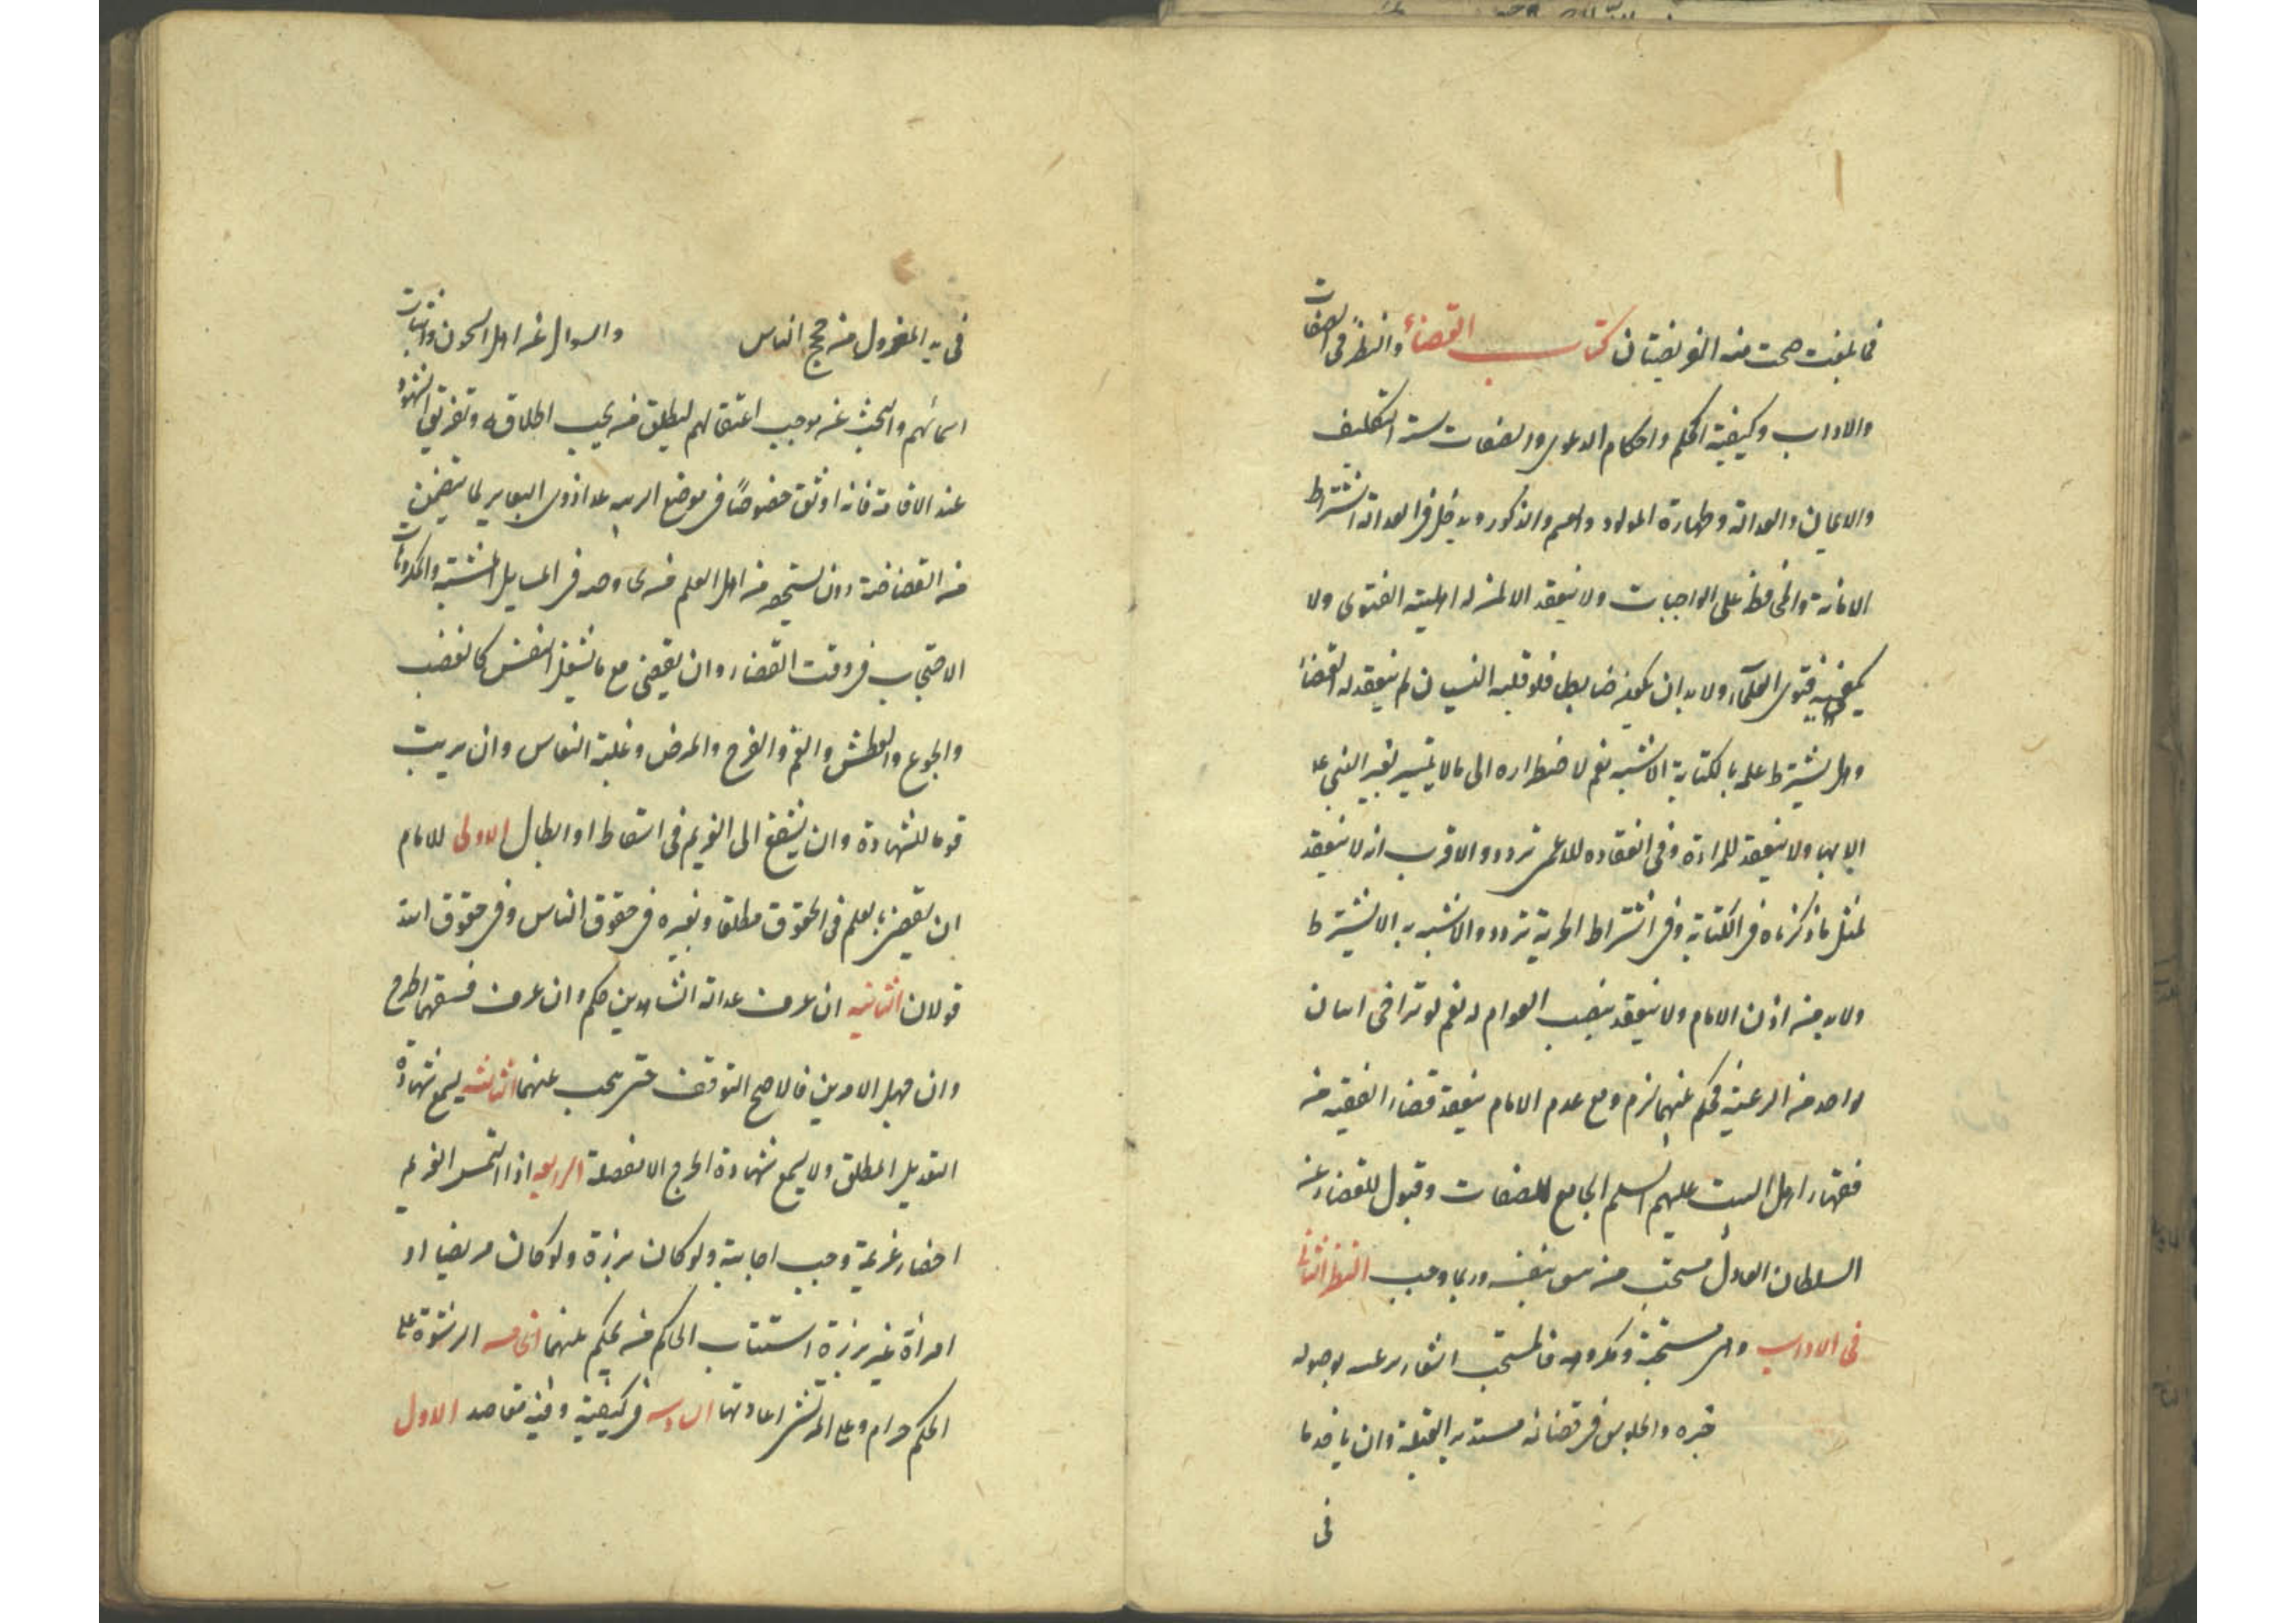 فما بلغت صحت منه الفريضتان كتاب القضاء والنظر فى الصفات
والاداب وكيفية الحكم واحكام الدعوى والصفات ستة التكليف
والايمان والعدالة وطهارة المولد والعلم والذكورة ويدخل فى العدالة اشتراط
الامانة والمحافظة على الواجبات ولا ينعقد الا لمن له اهلية الفتوى ولا
يكفيه فتوى العلماء ولا بد ان يكون ضابطا فلو غلبه النسيان لم ينعقد له القضاء
وهل يشترط علمه بالكتابة الاشبه نعم لاضطراره الى ما لا يتيسر لغير النبى عم
الا بها ولا ينعقد للمراءة وفى انعقاده للاعمى تردد والاقرب انه لا ينعقد
لمثل ما ذكرناه فى الكتابة وفى اشتراط الحرية تردد والاشبه به الا يشترط
ولا بد من اذن الامام ولا ينعقد بنصب العوام له نعم لو تراضى اثنان
بواحد من الرعية فحكم بينهما لزم ومع عدم الامام ينفذ قضاء الفقيه من
فقهاء اهل البيت عليهم السلم الجامع للصفات وقبول القضاء عن
السلطان العادل مستحب لمن يثق بنفسه وربما وجب النظر الثانى
فى الاداب وهى مستحبة ومكروهة فالمستحب اشعار رعيته بوصوله
خبره والجلوس فى قضائه مستدبر القبلة وان ياخذ ما
فى
فى يد المعزول من حجج الناس والسوال عن اهل السجون واثبات
اسمائهم والبحث عن موجب اعتقالهم ليطلق من يجب اطلاقه وتفريق الشهود
عند الاقامة فانه اوثق خصوصاً فى موضع الريبة عدا ذوى البصاير لما يتضمن
من الغضاضة وان يستحضر من اهل العلم من يخاوضه فى المسايل المشتبهة والمكروهات
الاحتجاب فى وقت القضاء وان يقضى مع ما يشغل النفس كالغضب
والجوع والعطش والغم والفرح والمرض وغلبة النعاس وان يرتب
قوما للشهادة وان يشفع الى الغريم فى اسقاط او ابطال الاولى للامام
ان يقضى بعلمه فى الحقوق مطلقا وغيره فى حقوق الناس وفى حقوق الله
قولان الثانيه ان عرف عدالة الشاهدين حكم وان عرف فسقهما اطرح
وان جهل الامرين فالاصح التوقف حتى يبحث عنهما الثالثه يسمع شهادة
التعديل المطلق ولا يسمع شهادة الجرح الا مفصلة الرابعه اذا التمس الغريم
احضار غريمه وجب اجابته ولو كان برزة ولو كان مريضا او
امرأة غير برزة استناب الحاكم من يحكم بينهما الخامسه الرشوة على
الحكم حرام وعلى المرتشى اعادتها السادسه فى كيفيته وفيه مقاصد الاول